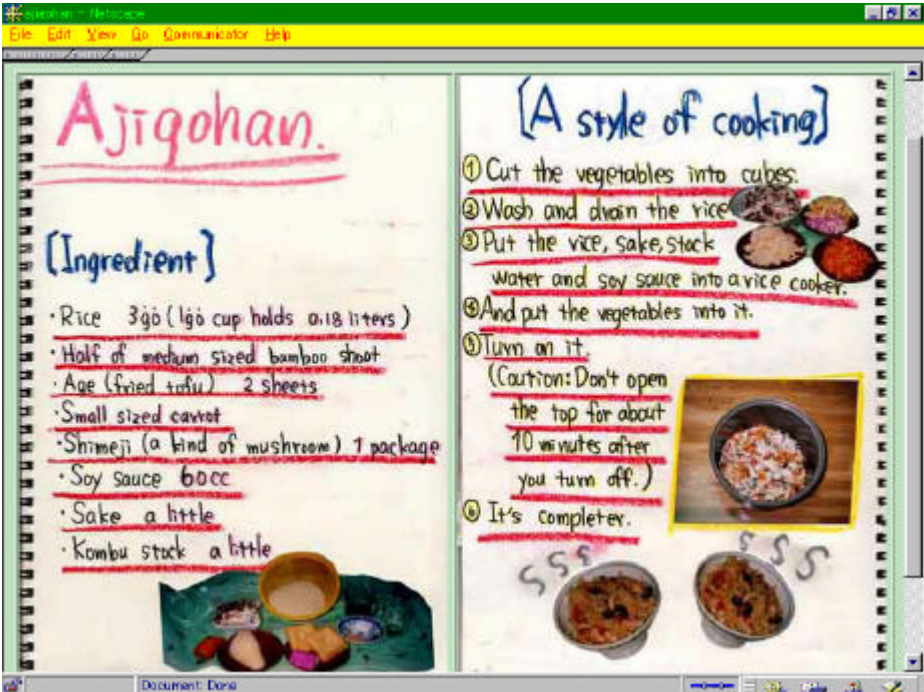 ajigohan - Netscape
File Edit View Go Communicator Help
Ajigohan.
[Ingredient]
・Rice 3gō (1gō cup holds 0.18 liters)
・Half of medium sized bamboo shoot
・Age (fried tofu) 2 sheets
・Small sized carrot
・Shimeji (a kind of mushroom) 1 package
・Soy sauce 60cc
・Sake a little
・Kombu stock a little
[A style of cooking]
① Cut the vegetables into cubes.
② Wash and drain the rice
③ Put the rice, sake, stock
water and soy sauce into a rice cooker.
④ And put the vegetables into it.
⑤ Turn on it.
(Caution: Don't open
the top for about
10 minutes after
you turn off.)
⑥ It's completer.
SSS
SSS
Document: Done